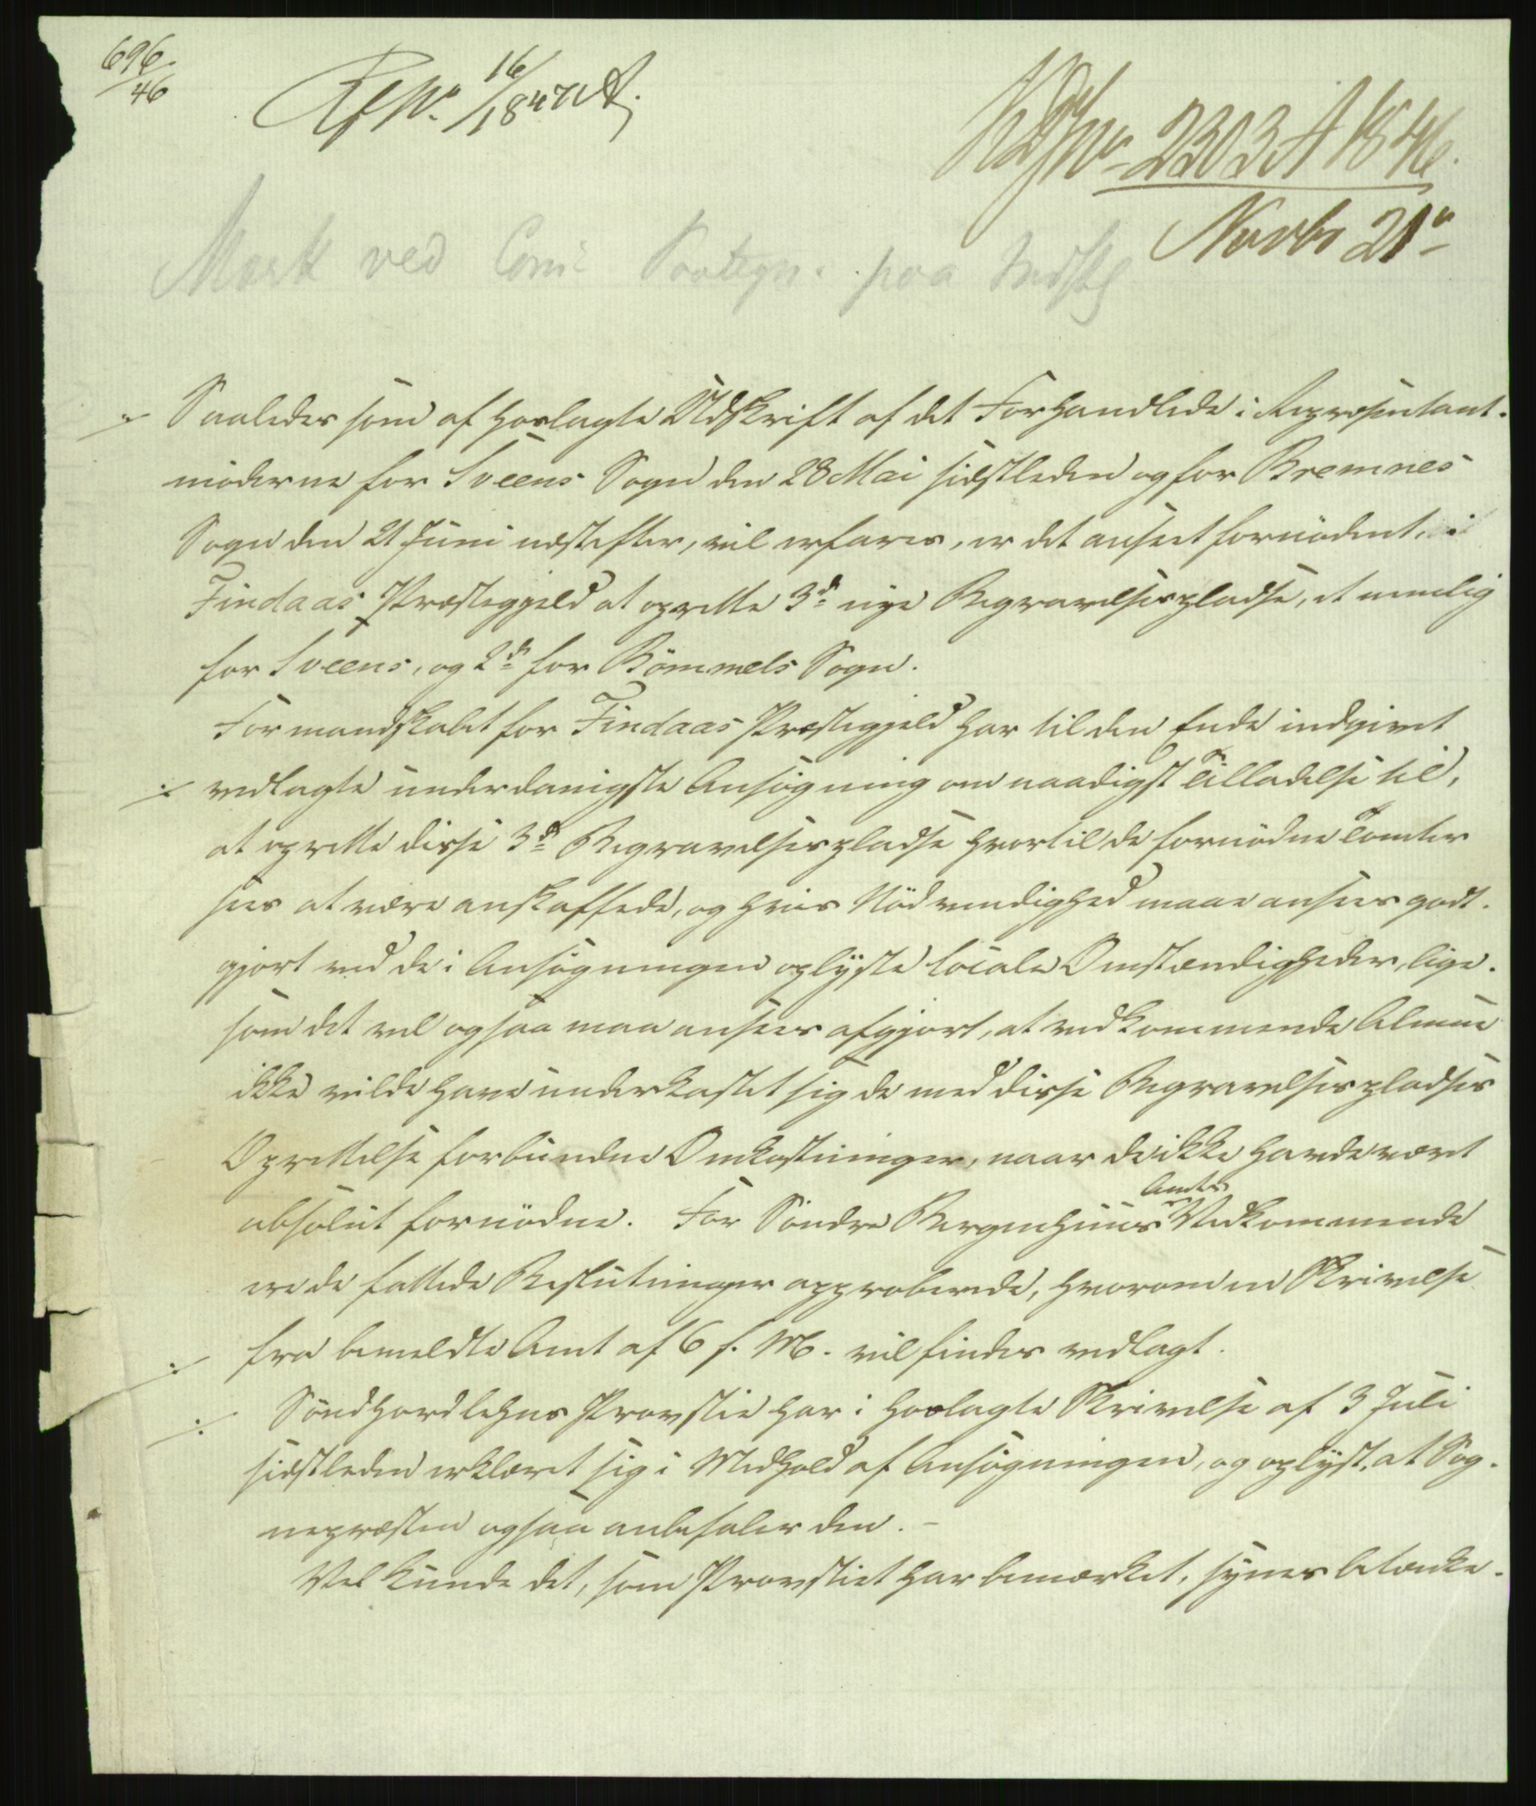 696/46
Ref No. 16/1847 A.
KDJNo 2303 A 1846.
Novbr 21de
Mærk ved Com. Paategn. paa Indstg
÷ Saaledes som af hoslagte Udskrift af det Forhandlede i Repræsentant-
möderne for Sveens Sogn den 28 Mai sidstleden og for Bremnes
Sogn den 21 Juni næstefter, vil erfares, er det anseet fornödent, i
Findaas Præstegjeld at oprette 3de nye Begravelsespladse, et nemlig
for Sveens, og 2de for Bömmels Sogn.
Formandskabet for Findaas Præstegjeld har til den Ende indgivet
÷ vedlagte underdanigste Ansögning om naadigst Tilladelse til,
at oprette disse 3de Begravelsespladse hvortil de fornödne Tomter
sees at være anskaffede, og hvis Nödvendighed maae ansees godt-
gjort ved de i Ansögningen oplyste locale Omstændigheder, lige-
som det vel ogsaa maa ansees afgjort, at vedkommende Almue
ikke vilde have underkastet sig de med disse Begravelsespladses
Oprettelse forbundne Omkostninger, naar de ikke havde været
absolut fornödne. For Söndre Bergenhuus Amts Vedkommende
ere de fattede Beslutninger approberede, hvorom en Skrivelse
÷ fra bemeldte Amt af 6 f. M. vil findes vedlagt.
÷ Söndhordlehns Provstie har i hoslagte Skrivelse af 3 Juli
sidstleden erklæret sig i Medhold af Ansögningen, og oplyst, at Sog-
nepræsten ogsaa anbefaler den. -
Vel kunde det, som Provstiet har bemærket, synes betænke-